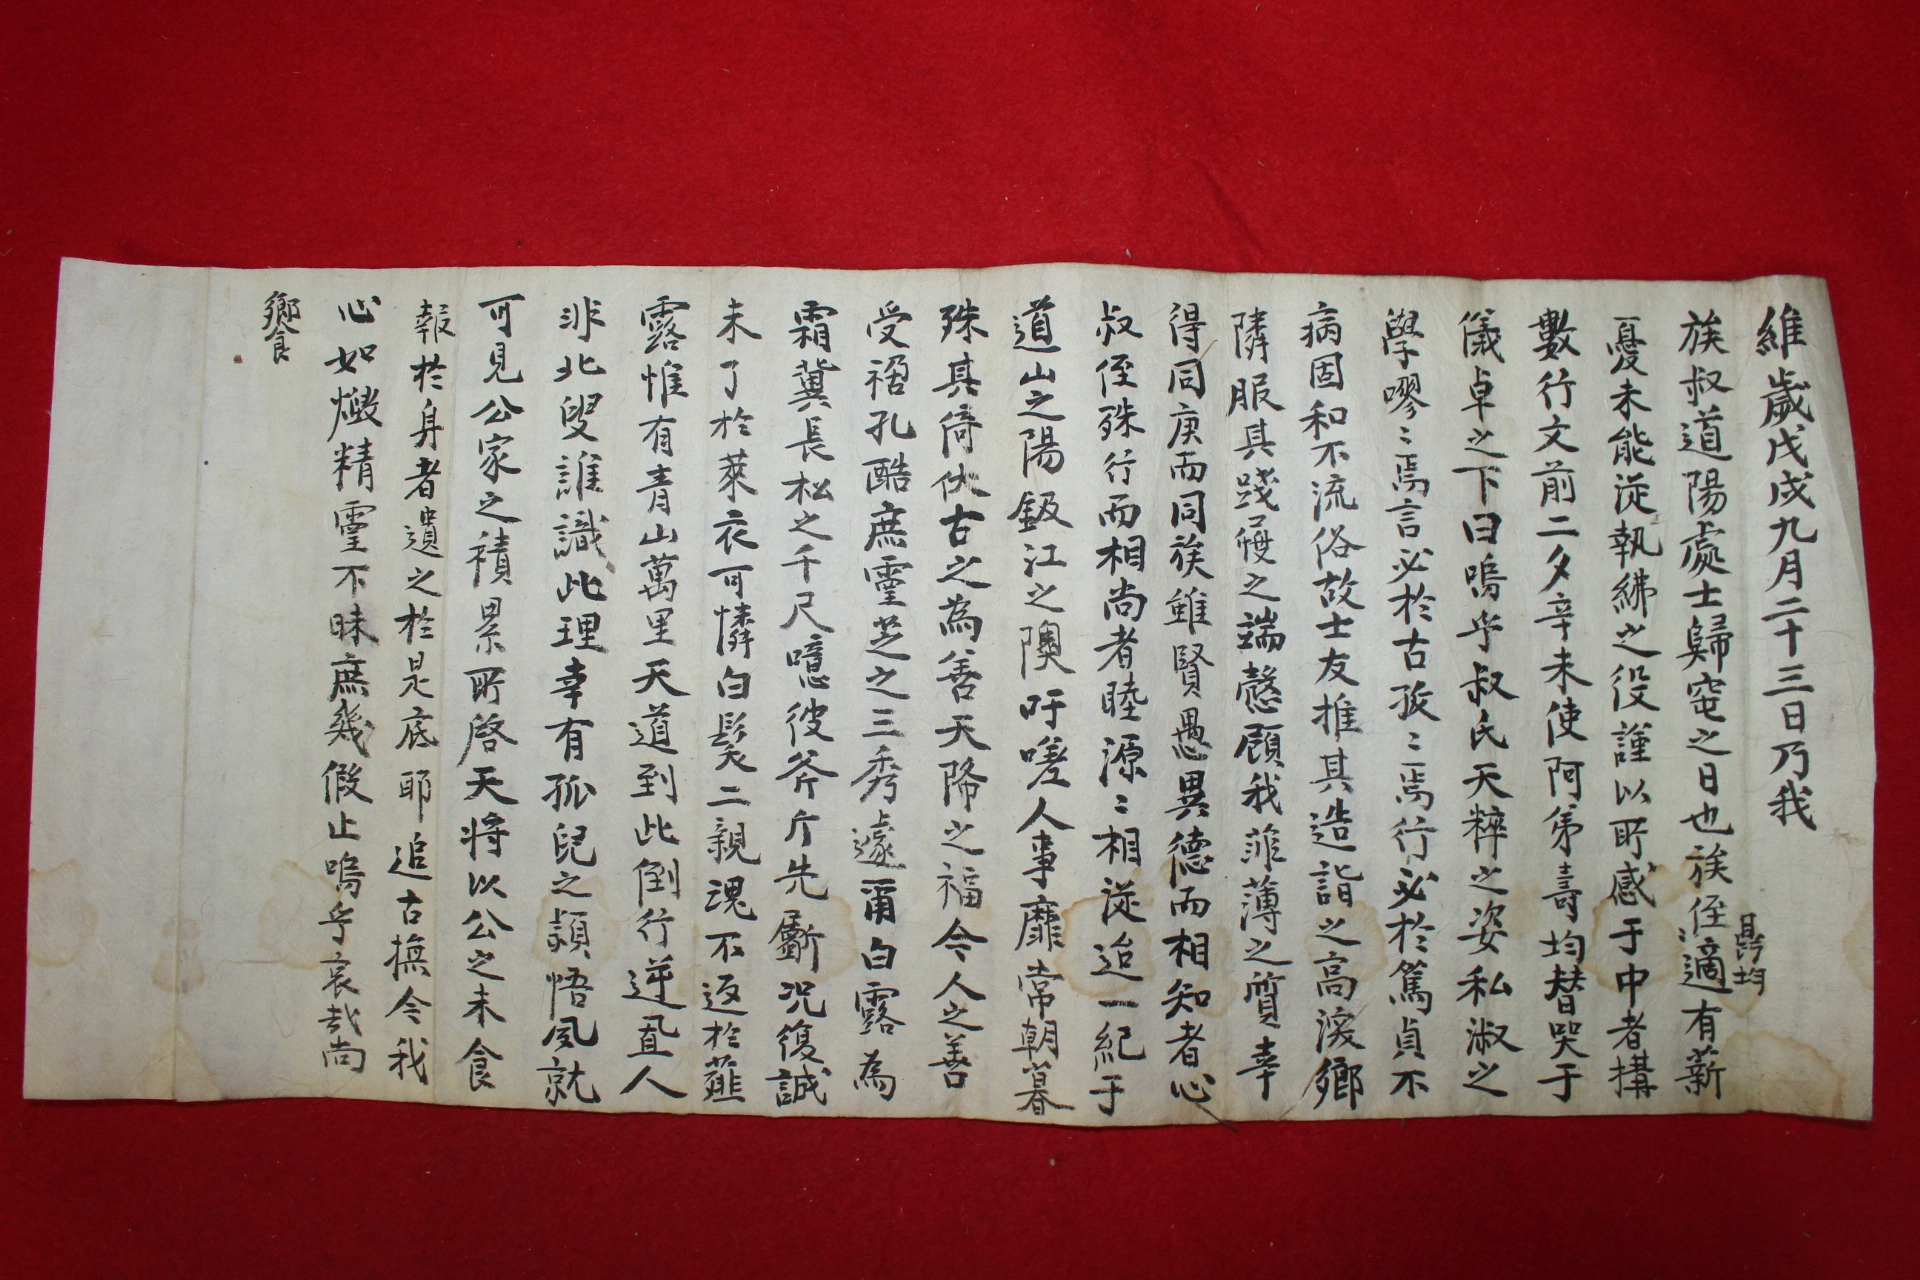 維歲戊戌九月二十三日乃我
族叔道陽處士歸窀之日也族侄昇均適有薪
憂未能從執紼之役謹以所感于中者搆
數行文前二夕辛未使阿弟壽均替哭于
儀卓之下曰嗚乎叔氏天粹之姿私淑之
學嘐〻焉言必於古孜〻焉行必於篤貞不
病固和不流俗故士友推其造詣之高深鄉
隣服其踐履之端慤顧我菲薄之質幸
得同庚而同族雖賢愚異德而相知者心
叔侄殊行而相尚者睦源〻相從迨一紀于
道山之陽鈒江之隩吁嗟人事靡常朝暮
殊其倚伏古之為善天降之福今人之善
受禍孔酷庶靈芝之三秀遽甭白露為
霜冀長松之千尺噫彼斧斤先斸况復誠
未了於萊衣可憐白髮二親魂不返於薤
露惟有青山萬里天道到此倒行逆置人
非北叟誰識此理幸有孤兒之穎悟夙就
可見公家之積累所啓天將以公之未食
報於身者遺之於是底耶追古撫今我
心如燬精靈不昧庶幾假止嗚乎哀哉尚
饗